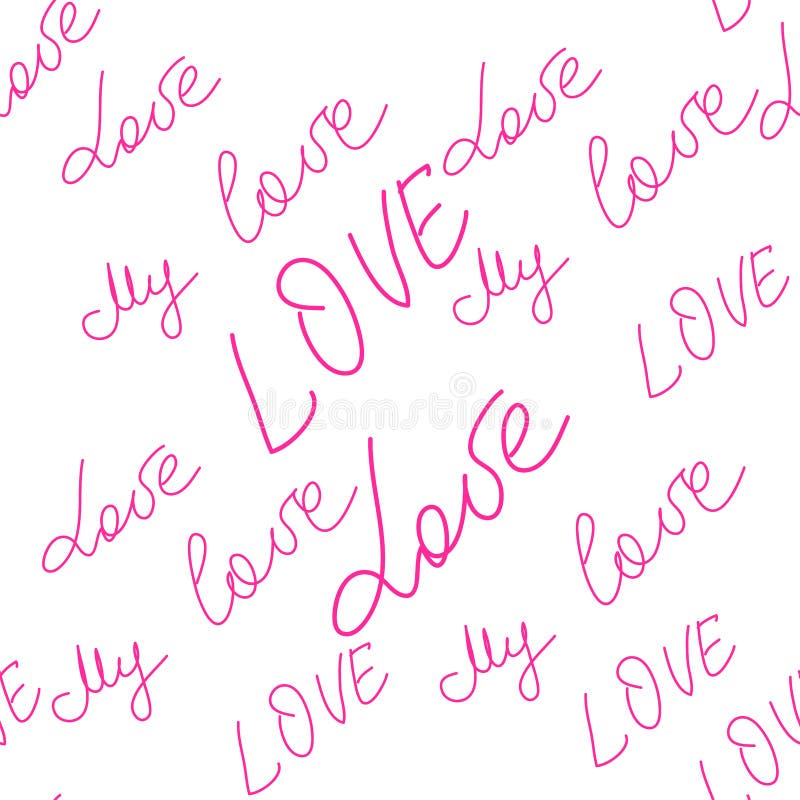 Love
Love
Love
Love
love
love
LOVE
My
My
LOVE
Love
Love
love
love
My
My
LOVE
LOVE
dreamstime